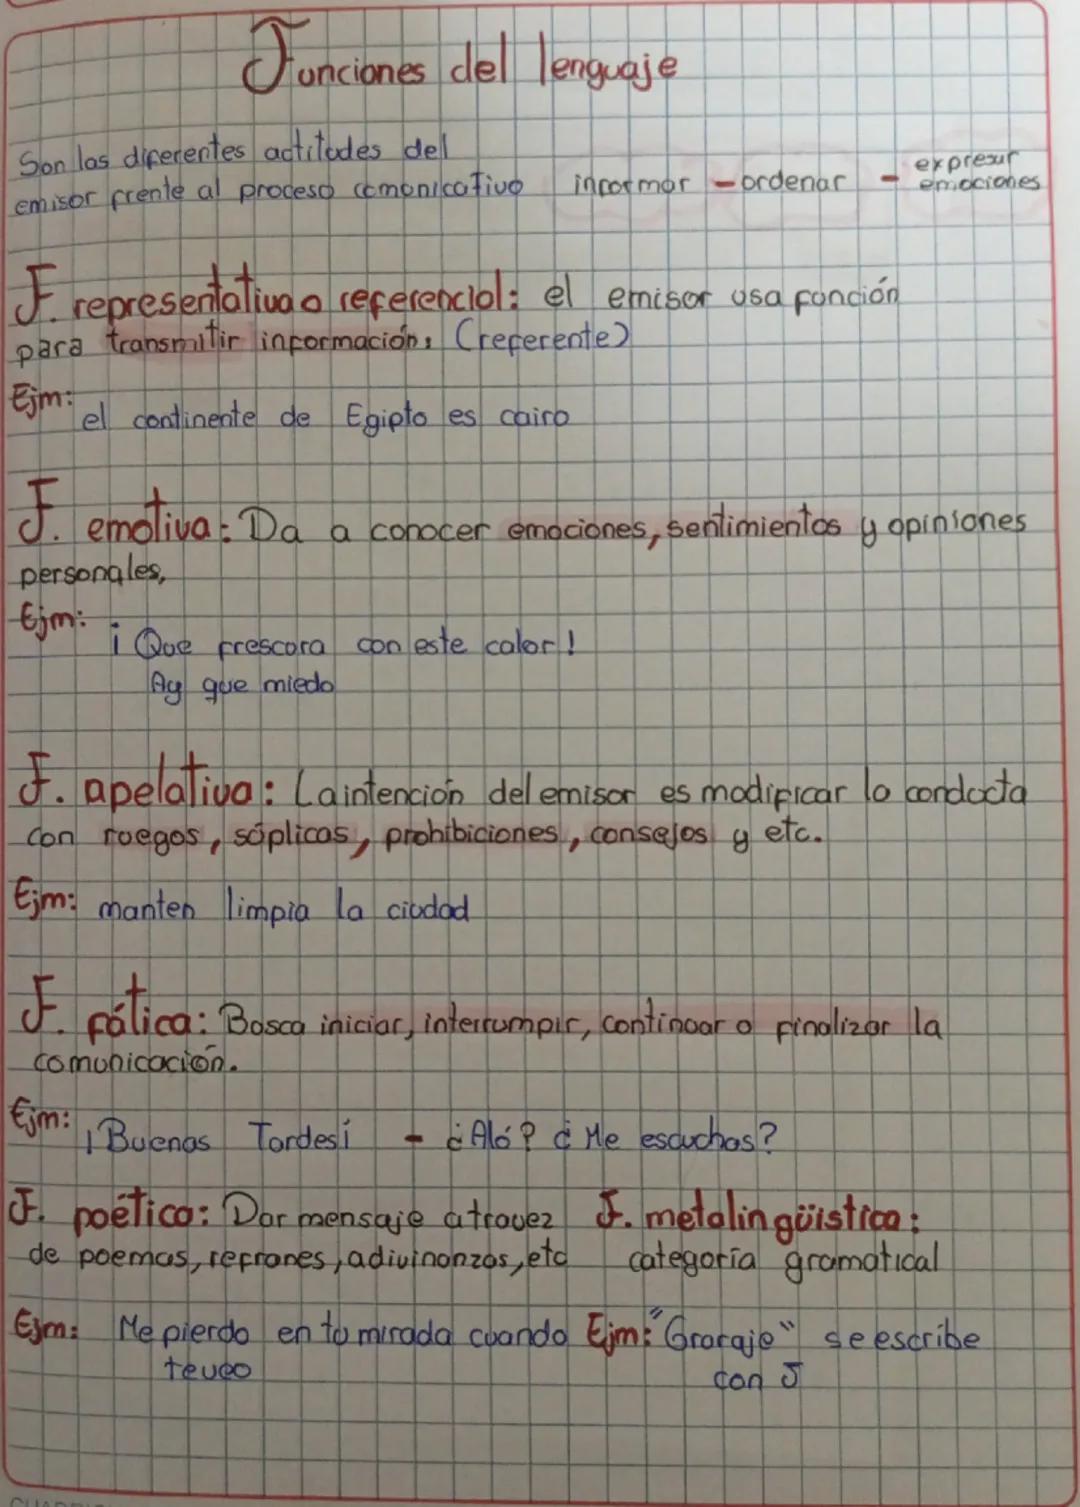 Funciones del lenguaje
Son las diferentes actitudes del
emisor frente al proceso comunicativo informar - ordenar - expresar
emociones
F. representativa o referencial: el emisor usa función
para transmitir información. (referente)
Ejm:
el continente de Egipto es cairo
F. emotiva: Da a conocer emociones, sentimientos y opiniones
personales,
Ejm:
¡Que frescura con este calor!
Ay que miedo
F. apelativa: La intención del emisor es modificar la conducta
con ruegos, súplicas, prohibiciones, consejos y etc.
Ejm: manten limpia la ciudad
F. fática: Busca iniciar, interrumpir, continuar o finalizar la
comunicación.
Ejm:
¡Buenas Tardes¡ - ¿Aló? ¿Me escuchas?
F. poética: Dar mensaje atravez
de poemas, refranes, adivinanzas, etc
Ejm: Me pierdo en tu mirada cuando
te veo
F. metalingüistica:
categoría gramatical
Ejm: "Graraje" se escribe
con J